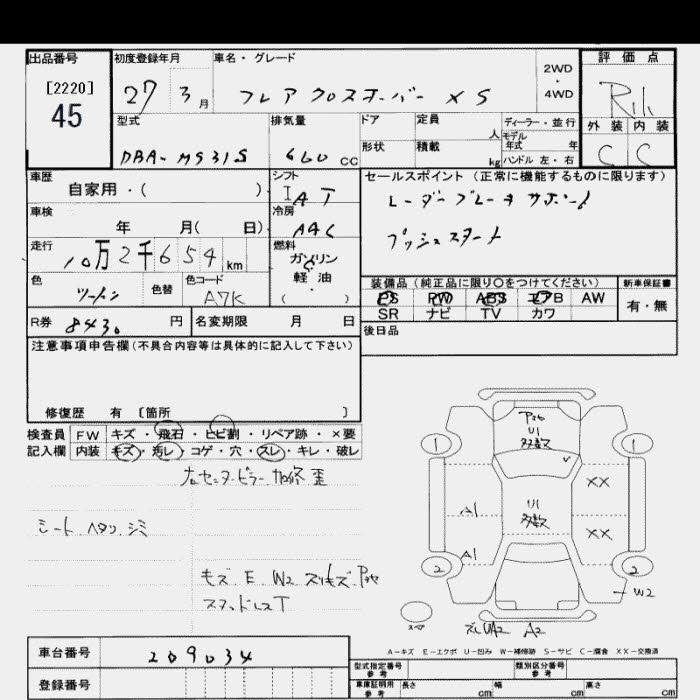 出品番号
[2220]
45
初度登録年月
27 3月
車名・グレード
フレア クロスオーバー XS
2WD
・
4WD
評価点
外装 内装
C C
型式
DBA-MS31S
排気量
660 CC
ドア
形状
定員
人
積載
kg
ディーラー・並行
モデル
年式 年
ハンドル 左・右
車歴
自家用・( )
シフト
IAT
車検
年 月( 日)
冷房
AAC
走行
10万2千654 km
燃料
ガソリン
軽油
( )
色
ツートン
色替
色コード
A7K
R券 8430 円
名変期限 月 日
セールスポイント(正常に機能するものに限ります)
レーダーブレーキサポート
プッシュスタート
装備品(純正品に限り〇をつけてください)
PS PW ABS エアB AW
SR ナビ TV カワ
新車保証書
有・無
後日品
注意事項申告欄(不具合内容等は具体的に記入して下さい)
修復歴 有 〔箇所 〕
検査員
記入欄
FW キズ・飛石・ヒビ割・リペア跡・×要
内装 キズ・汚レ・コゲ・穴・スレ・キレ・破レ
センターピラー 加修 歪
シート ヘタリ シミ
キズ E W2 スリキズ
スタッドレスT
U1
多数
1
1
XX
A1
U1
多数
XX
A1
2
2
W2
スペア
A2
A-キズ E-エクボ U-凹み W-補修跡 S-サビ C-腐食 XX-交換済
車台番号 209034
登録番号
型式指定番号
参考
類別区分番号
参考
車庫証明用
参考
長さ cm
幅 cm
高さ cm